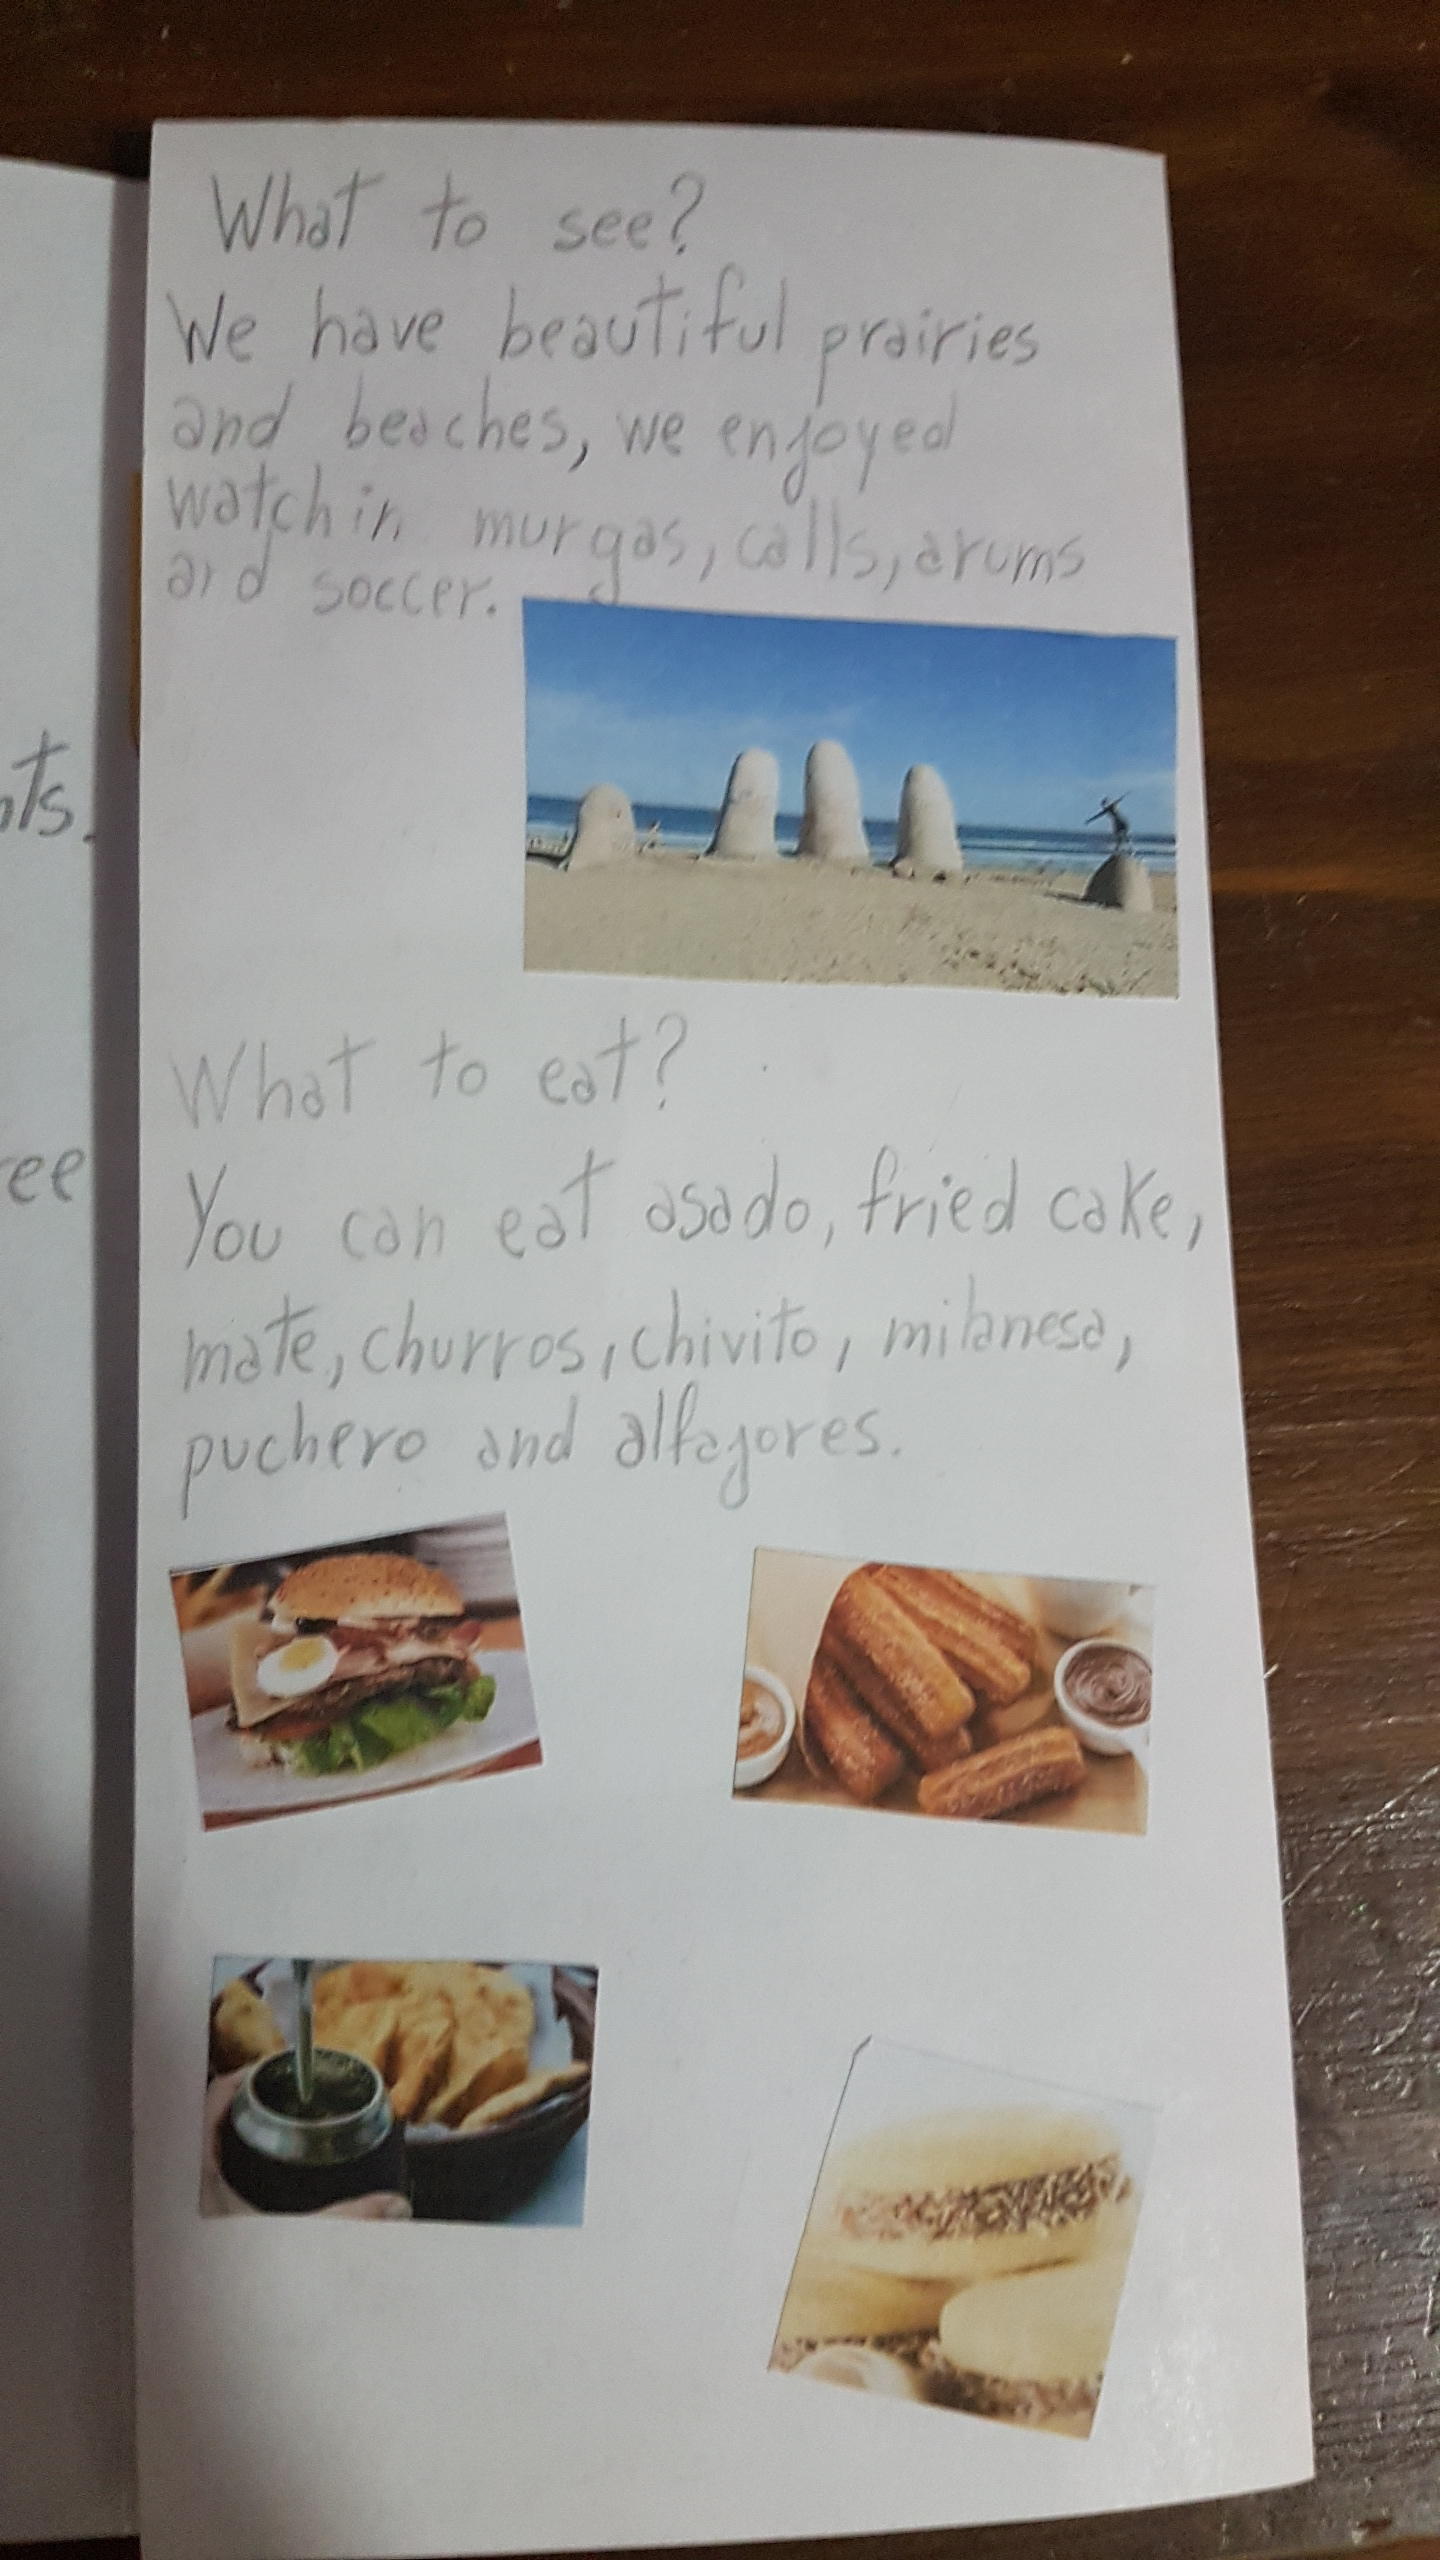 What to see?
We have beautiful prairies
and beaches, we enjoyed
watchin murgas, calls, drums
and soccer.
What to eat?
You can eat asado, fried cake,
mate, churros, chivito, milanesa,
puchero and alfajores.